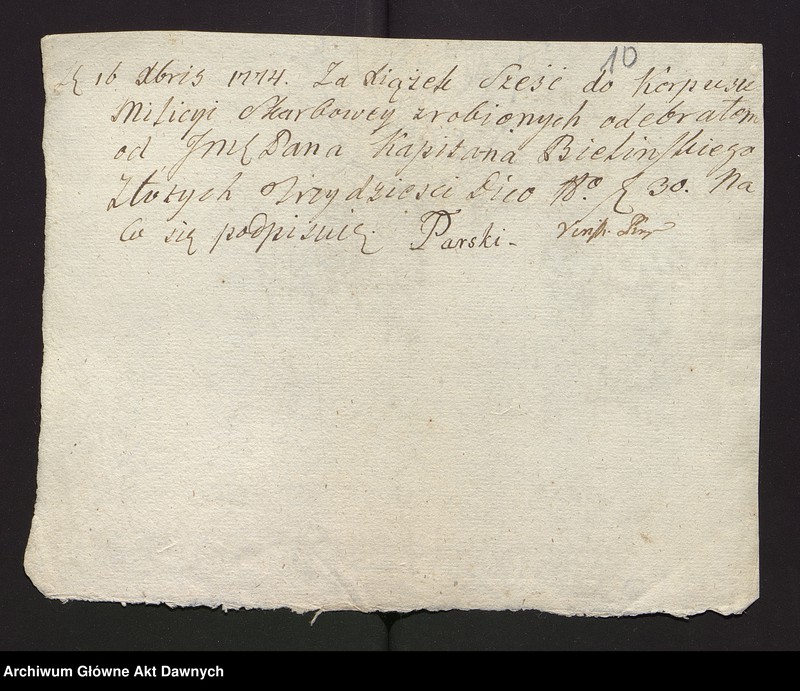 10
16 Xbris 1774. Za Xiążek Sześć do Korpusu
Milicyi Skarbowey zrobionych odebrałem
od Jmć Pana Kapitana Bielińskiego
Złotych Trzydzieści Dico No 30. Na
Co się podpisuię. Parski -
Archiwum Główne Akt Dawnych